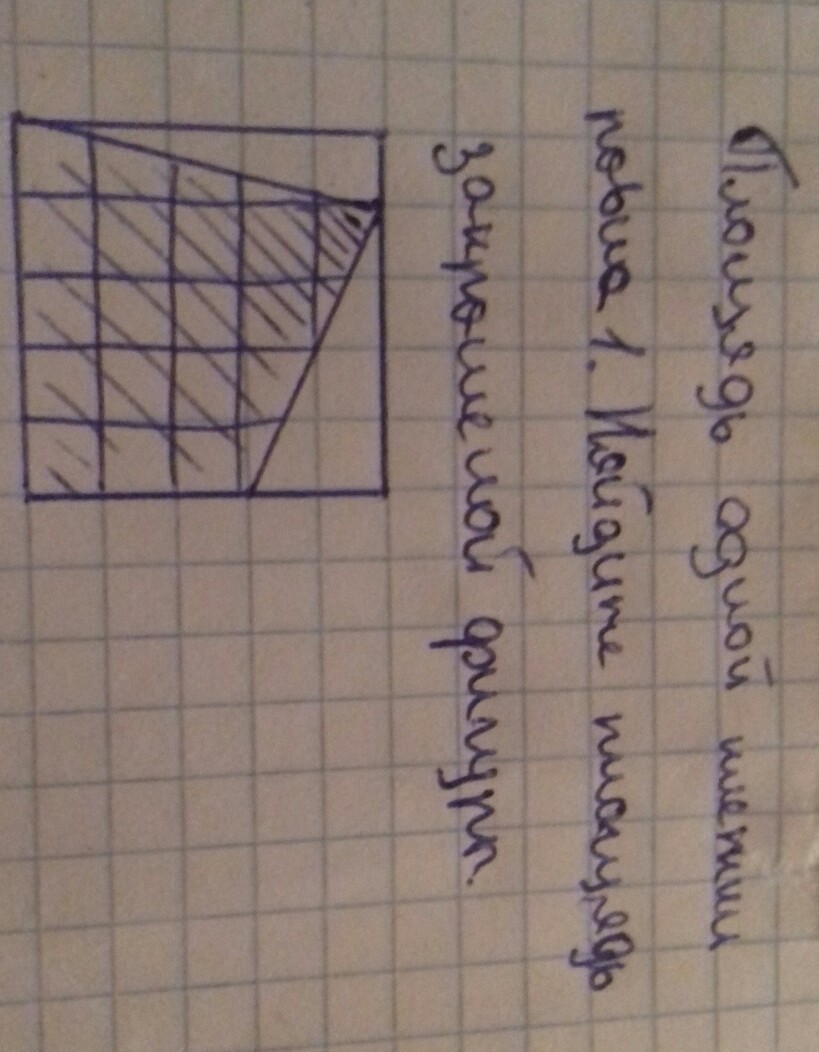 Площадь одной клетки
равна 1. Найдите площадь
закрашеной фигуры.